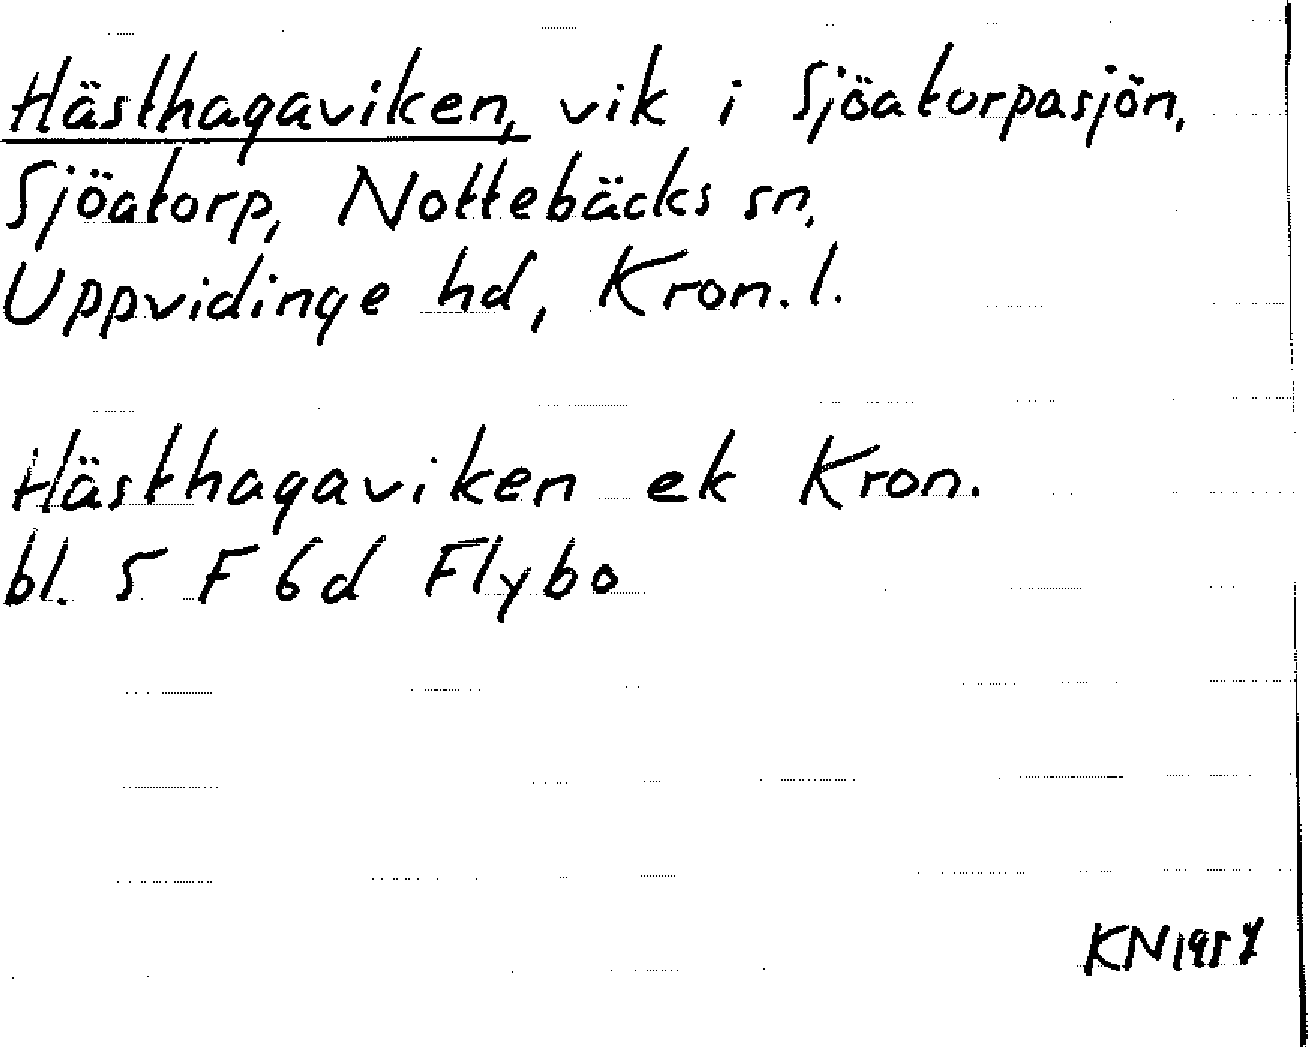 Hästhagaviken, vik i Sjöatorpasjön,
Sjöatorp, Nottebäcks sn,
Uppvidinge hd, Kron. l.
Hästhagaviken ek Kron.
bl. 5 F 6d Flybo
KN 1957